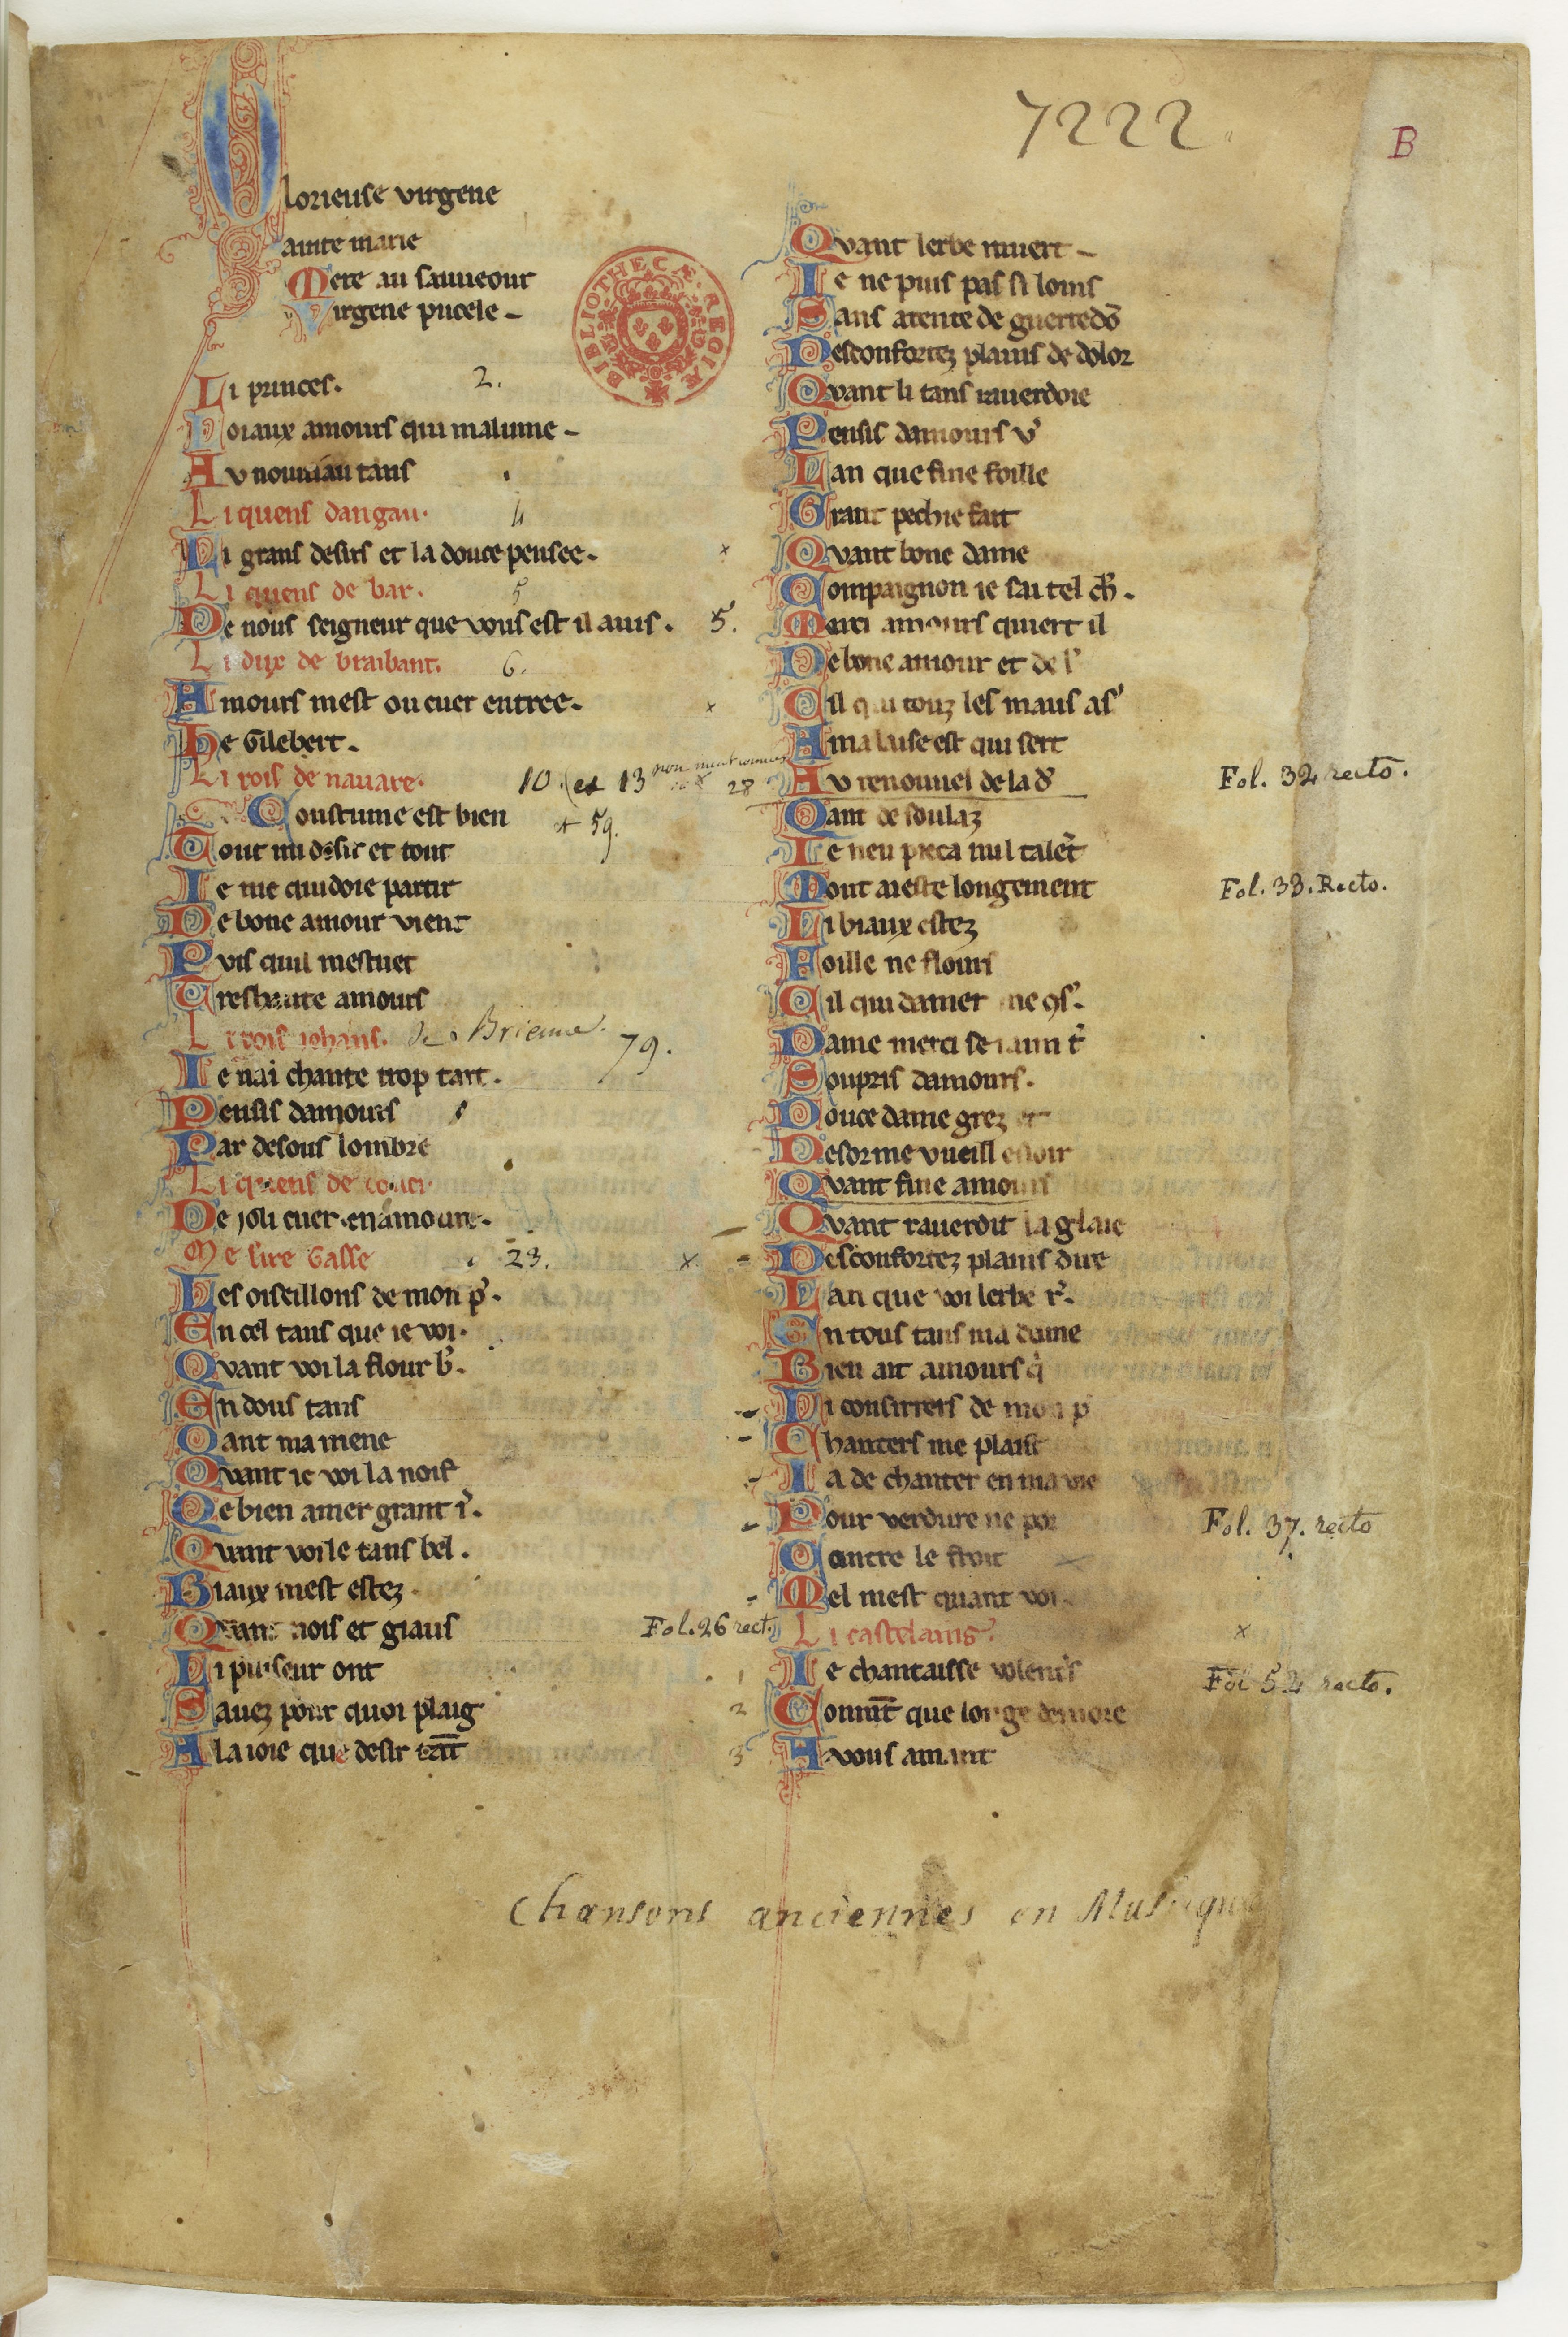 7222
B
Glorieuse virgene
Sainte marie
Mere au sauueour
Virgene pucele
BIBLIOTHECÆ REGIÆ
Li princes. 2.
Loiaux amours qui malume
Av nouuiau tans
Li quens dangau. 4
Li grans desirs et la douce pensee.
Li quens de bar. 5
De nous seigneur que vous est il auis. 5.
Li dux de braibant. 6.
Amours mest ou cuer entree. x
He Gilebert.
Li rois de nauare. 10. (et 13 28
Coustume est bien + 59.
Tout mi desir et tout
Ie me cuidoie partir
De bone amour vient
Pvis quil mestuet
Treshaute amours
Li rois iohans. de Brienne. 79.
Ie nai chante trop tart.
Pensis damours
Par desous lombre
Li quens de couci
De joli cuer enamoure.
Me sire Gasse 23. x
Les oiseillons de mon p'.
En cel tans que ie voi.
Qvant voi la flour b'.
En dous tans
Qant ma mene
Qvant ie voi la noif
Qe bien amer grant i'.
Qvant voi le tans bel.
Biaux mest estez.
Qvant nois et giaus Fol. 26 rect.
Li pluseur ont
Sauez pour quoi plaig
A la ioie que desir tāt
Qvant lerbe muert
x Ie ne puis pas si loins
Sans atente de guerredō
Desconfortez plains de dolor
Qvant li tans rauerdoie
Pensis damours v'
Lan que fine foille
Grant pechie fait
Qvant bone dame
Compaignon ie sai tel ch'.
Merci amours quiert il
De bone amour et de l'
Cil qui touz les maus as'
Amabuse est qui sert
Av renouuel de la d' Fol. 32 recto.
Qant de soulaz
Ie neu pieca nul talēt
Mout ai este longement Fol. 33. Recto.
Li biaux estez
Foille ne flours
Cil qui damer me 9s'.
Dame merci se iaim t'
Soupris damours.
Douce dame grez et
Desor me vueill esioir
Qvant fine amours
Qvant rauerdit la glaie
Desconfortez plains dire
Lan que voi lerbe r'.
En tous tans ma dame
Bien ait amours q'
Li consirrers de mon p
Chanters me plaist
Ia de chanter en ma vie
Pour verdure ne por Fol. 37. recto
Contre le froit
Mel mest quant voi
Li castelains'. x
1 Ie chantaisse volent's Fol 52 recto.
2 Comēt que longe demore
3 A vous amant
Chansons anciennes en Musique